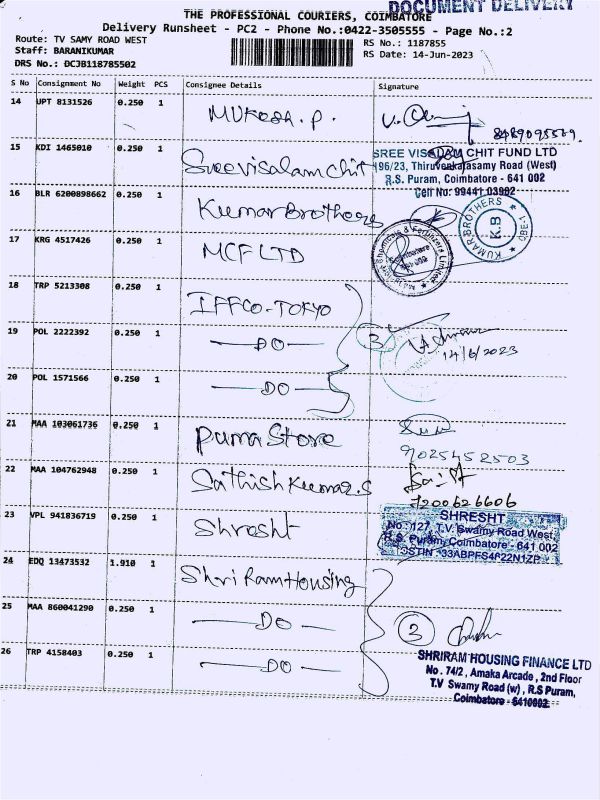 DOCUMENT DELIVERY
THE PROFESSIONAL COURIERS, COIMBATORE
Delivery Runsheet - PC2 - Phone No.:0422-3505555 - Page No.:2
Route: TV SAMY ROAD WEST
RS No.: 1187855
Staff: BARANIKUMAR
RS Date: 14-Jun-2023
DRS No.: DCJB118785502
S No Consignment No Weight PCS Consignee Details Signature
14 UPT 8131526 0.250 1 MUKESH. P.
15 KDI 1465010 0.250 1 Sreevisalam chit
SREE VISALAM CHIT FUND LTD
196/23, Thiruvenkatasamy Road (West)
R.S. Puram, Coimbatore - 641 002
Cell No: 99441 03902
16 BLR 6200898662 0.250 1 Kumar Brothers
KUMAR BROTHERS
K.B
17 KRG 4517426 0.250 1 MCF LTD
18 TRP 5213308 0.250 1 IFFCO-TOKYO
19 POL 2222392 0.250 1 DO 3
14/6/2023
20 POL 1571566 0.250 1 DO
21 MAA 103061736 0.250 1 Puma Store
9025452503
22 MAA 104762948 0.250 1 Sathish Kumar.S
7200626606
23 VPL 941836719 0.250 1 Shresht
SHRESHT
No. 127, T.V. Swamy Road West,
R.S. Puram, Coimbatore - 641 002
24 EDQ 13473532 1.910 1 Shri Ram Housing
25 MAA 860041290 0.250 1 DO 3
26 TRP 4158403 0.250 1 DO
SHRIRAM HOUSING FINANCE LTD
No. 74/2, Amaka Arcade, 2nd Floor
T.V Swamy Road (w), R.S Puram,
Coimbatore - 641002